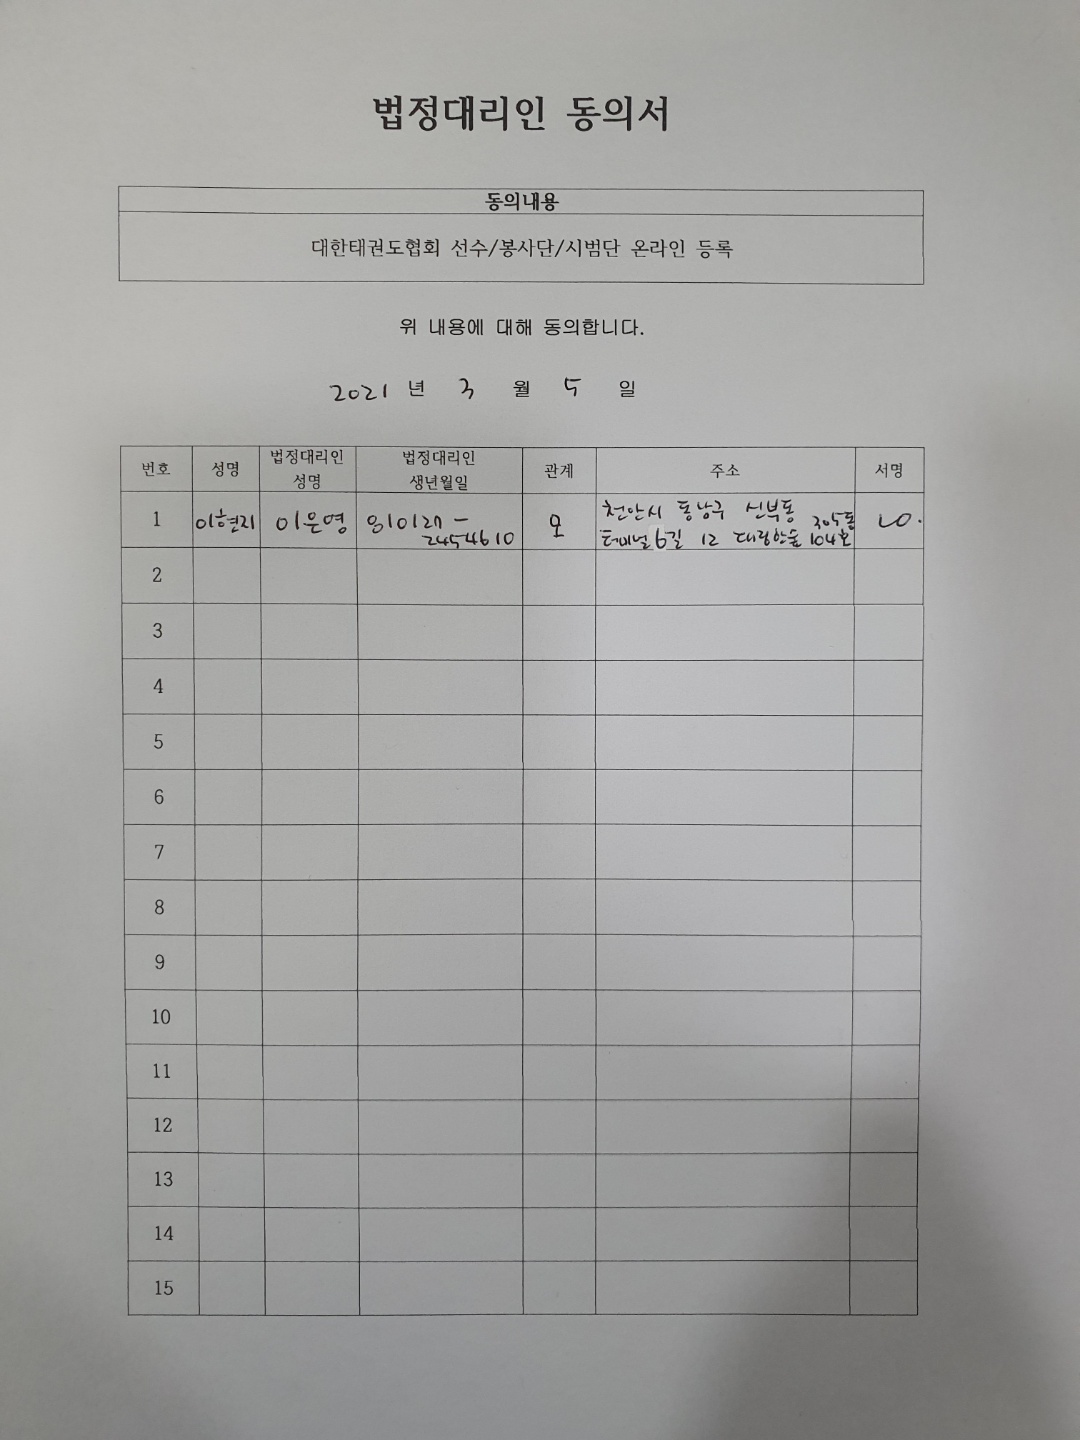 법정대리인 동의서
동의내용
대한태권도협회 선수/봉사단/시범단 온라인 등록
위 내용에 대해 동의합니다.
2021 년 3 월 5 일
번호 성명 법정대리인 성명 법정대리인 생년월일 관계 주소 서명
1 이현지 이은영 810127 - 2454610 모 천안시 동남구 신부동 305동
터미널 6길 12 대림한숲 104호
2
3
4
5
6
7
8
9
10
11
12
13
14
15